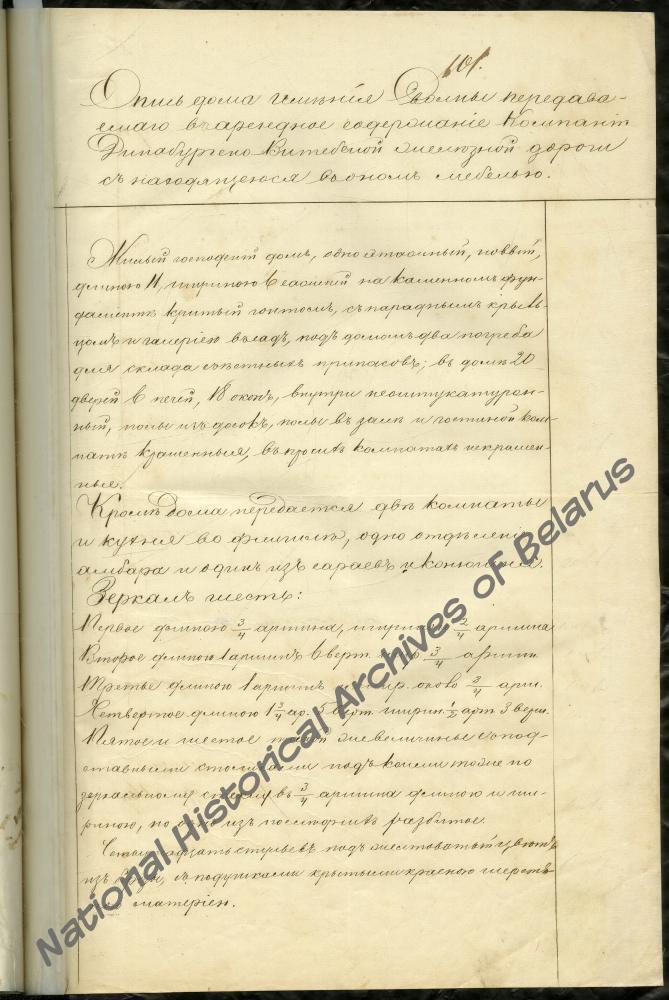 101.
Опись дома имѣнія Сволны передава-
емаго въ арендное содержаніе Компаніи
Динабургско-Витебской желѣзной дороги
съ находящеюся въ ономъ мебелью.
Жилый господскій домъ, одноэтажный, новый,
длиною 11, шириною 6 саженей на каменномъ фун-
даментѣ крытый гонтомъ, съ параднымъ крыль-
цомъ и галереіею въ садъ, подъ домомъ два погреба
для склада съѣстныхъ припасовъ; въ домѣ 20
дверей 6 печей, 18 оконъ, внутри неоштукатурен-
ный, полы изъ досокъ, полы въ залѣ и гостиной ком-
натѣ крашенныя, въ прочихъ комнатахъ некрашен-
ныя.
Кромѣ дома передается двѣ комнаты
и кухня во флигелѣ, одно отдѣленіе
амбара и одинъ изъ сараевъ и конюшня.
Зеркалъ шесть:
Первое длиною 3/4 аршина, шириною 2/4 аршина
Второе длиною 1 аршинъ 6 верш. шир 3/4 аршин
Третье длиною 1 аршинъ шир. около 3/4 арш.
Четвертое длиною 1 3/4 ар. 5 верш. ширин. 1/2 арш 3 верш.
Пятое и шестое такой же величины съ под-
ставными столиками подъ коими тоже по
зеркальному стеклу въ 3/4 аршина длиною и ши-
риною, но одно изъ послѣднихъ разбитое.
стульевъ подъ желтоватый цвѣтъ
изъ съ подушками крытыми красною шерст
матеріею.
National Historical Archives of Belarus